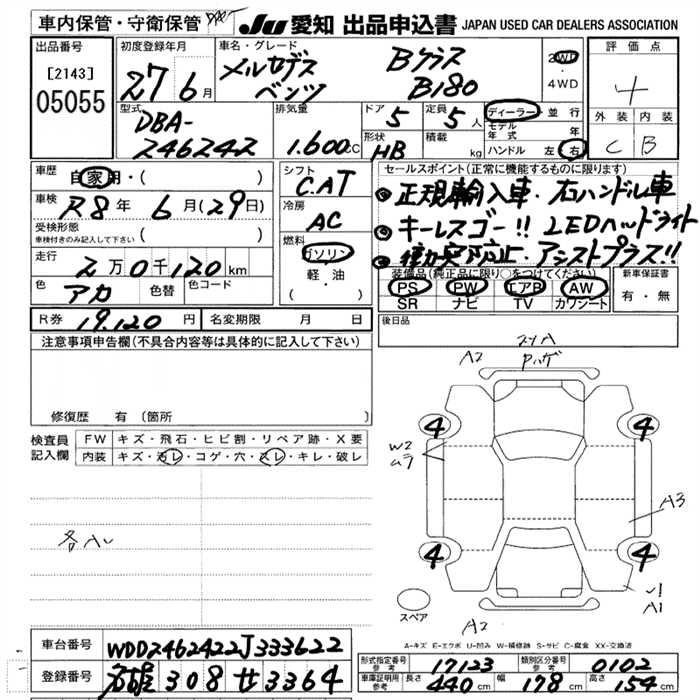 車内保管・守衛保管
JU 愛知 出品申込書 JAPAN USED CAR DEALERS ASSOCIATION
出品番号
[2143]
05055
初度登録年月
27 6月
車名・グレード
メルセデス Bクラス
ベンツ B180
2WD
・4WD
評価点
4
外装 内装
C B
型式
DBA-
246242
排気量
1.600cc
ドア 5
定員 5人
形状 HB
積載 kg
ディーラー・並行
モデル年式 年
ハンドル 左・右
車歴
自家用・( )
車検
R8年 6月(29日)
受検形態
車検付きのみ記入して下さい ( )
走行
2万0千120km
色 アカ 色替 色コード
シフト
C.AT
冷房
AC
燃料
ガソリン
軽・油
( )
セールスポイント(正常に機能するものに限ります)
正規輸入車・右ハンドル車
キーレスゴー!! LEDヘッドライト
アシストプラス!!
装備品(純正品に限り○をつけてください)
PS PW エアB AW
SR ナビ TV カワシート
新車保証書
有・無
R券 19.120円 名変期限 月 日
後日品
注意事項申告欄(不具合内容等は具体的に記入して下さい)
修復歴 有(箇所
検査員
記入欄
FW キズ・飛石・ヒビ割・リペア跡・X要
内装 キズ・汚レ・コゲ・穴・スレ・キレ・破レ
A2
4 4
W2
ムラ
A3
各A
4 4
A1
スペア
A2
A-キズ E-エクボ U-凹み W-補修跡 S-サビ C-腐食 XX-交換済
車台番号 WDD2462422J333622
登録番号 308 せ 3364
形式指定番号 参考 17123 類別区分番号 参考 0102
車庫証明用 参考 長さ 440cm 幅 178cm 高さ 154cm